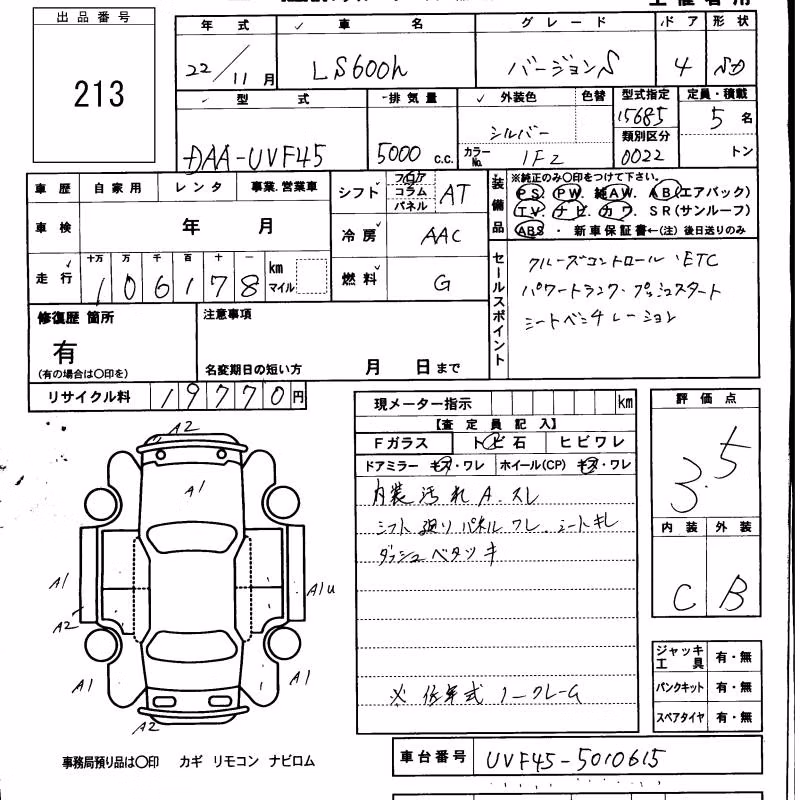 出品番号
213
年式 車名 グレード ドア 形状
22/11月 LS600h バージョンS 4 SD
型式 排気量 外装色 色替 型式指定 定員・積載
DAA-UVF45 5000 c.c. シルバー 15685 5名
カラーNo. 1F2 類別区分 0022 トン
車歴 自家用 レンタ 事業.営業車
シフト フロア コラム パネル AT
装備品 ※純正のみ〇印をつけて下さい。
PS. PW. 純AW. AB(エアバック)
TV. ナビ. カワ. SR(サンルーフ)
ABS ・ 新車保証書←(注) 後日送りのみ
車検 年 月
冷房 AAC
走行 十万 万 千 百 十 一
106178 km マイル
燃料 G
セールスポイント
クルーズコントロール、ETC
パワートランク・プッシュスタート
シートベンチレーション
修復歴 箇所
有
(有の場合は〇印を)
注意事項
名変期日の短い方 月 日まで
リサイクル料 19770円
現メーター指示 km
【査定員記入】
Fガラス トビ石 ヒビワレ
ドアミラー キズ・ワレ ホイール(CP) キズ・ワレ
内装汚れ A.スレ
シフト廻りパネルワレ、シートキレ
ダッシュベタツキ
※低年式ノークレーム
評価点
3.5
内装 外装
C B
A2
A1
A1
A1U
A2
A1
A1
A2
ジャッキ工具 有・無
パンクキット 有・無
スペアタイヤ 有・無
事務局預り品は〇印 カギ リモコン ナビロム
車台番号 UVF45-5010615